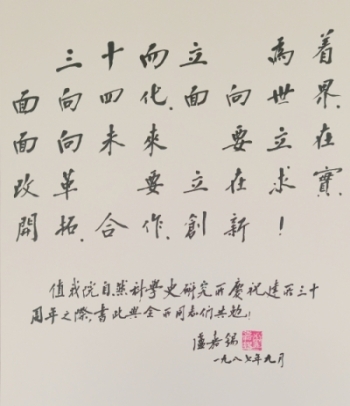 三十而立 為着
面向四化、面向世界、
面向未來 要立在
改革 要立在求實、
開拓、合作、創新！
值我院自然科學史研究所慶祝建所三十
周年之際，書此與全所同志們共勉！
盧嘉錫
一九八七年九月